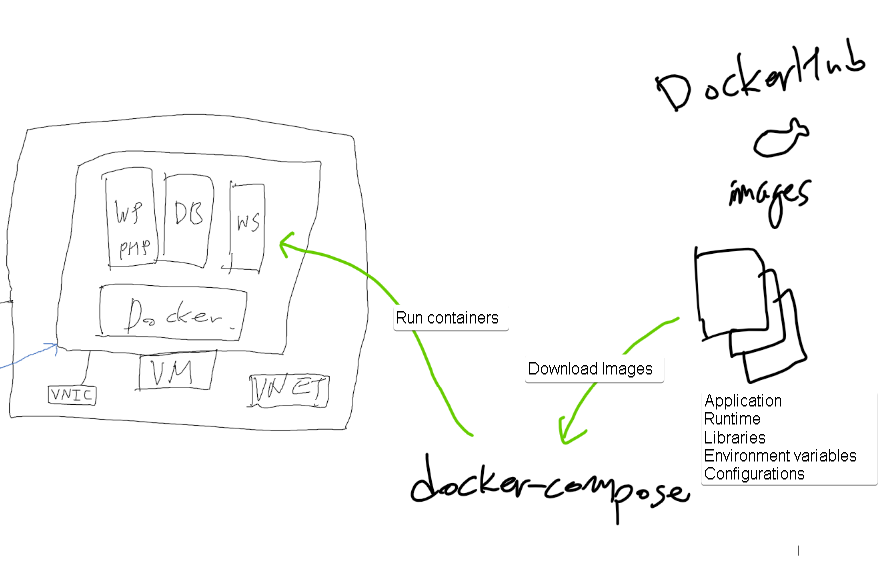 DockerHub
images
WP
PHP
DB
WS
Docker.
VM
VNIC
VNET
Run containers
Download Images
Application
Runtime
Libraries
Environment variables
Configurations
docker-compose